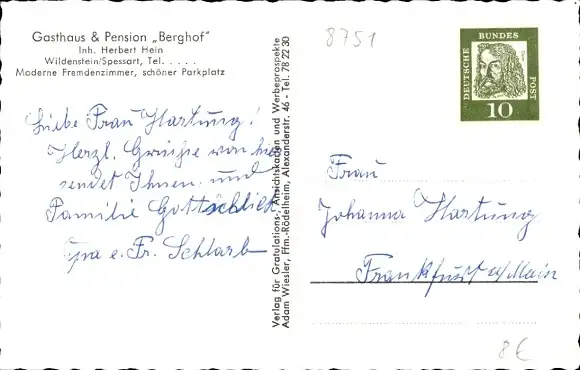 Gasthaus & Pension „Berghof"
Inh. Herbert Hein
Wildenstein/Spessart, Tel. . . . . .
Moderne Fremdenzimmer, schöner Parkplatz
Liebe Frau Hartung!
Herzl. Grüsse von hier
sendet Ihnen und
Familie Gottschlich
e. Fr. Schlarb
Verlag für Gratulations-, Ansichtskarten und Werbeprospekte
Adam Wiesler, Ffm.-Rödelheim, Alexanderstr. 46 - Tel. 78 22 30
8751
DEUTSCHE
BUNDES
POST
10
Frau
Johanna Hartung
Frankfurt a/Main
8€